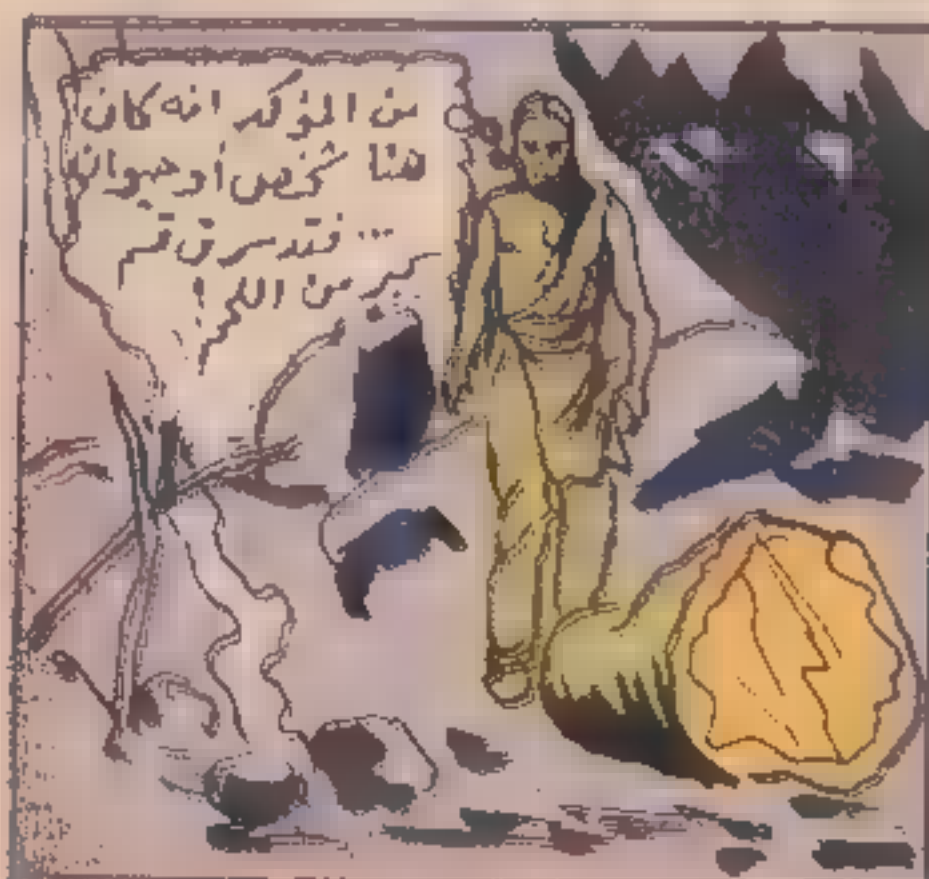 من المؤكد انه كان
هنا شخص أو حيوان
... فقد سرق قسم
من اللحم